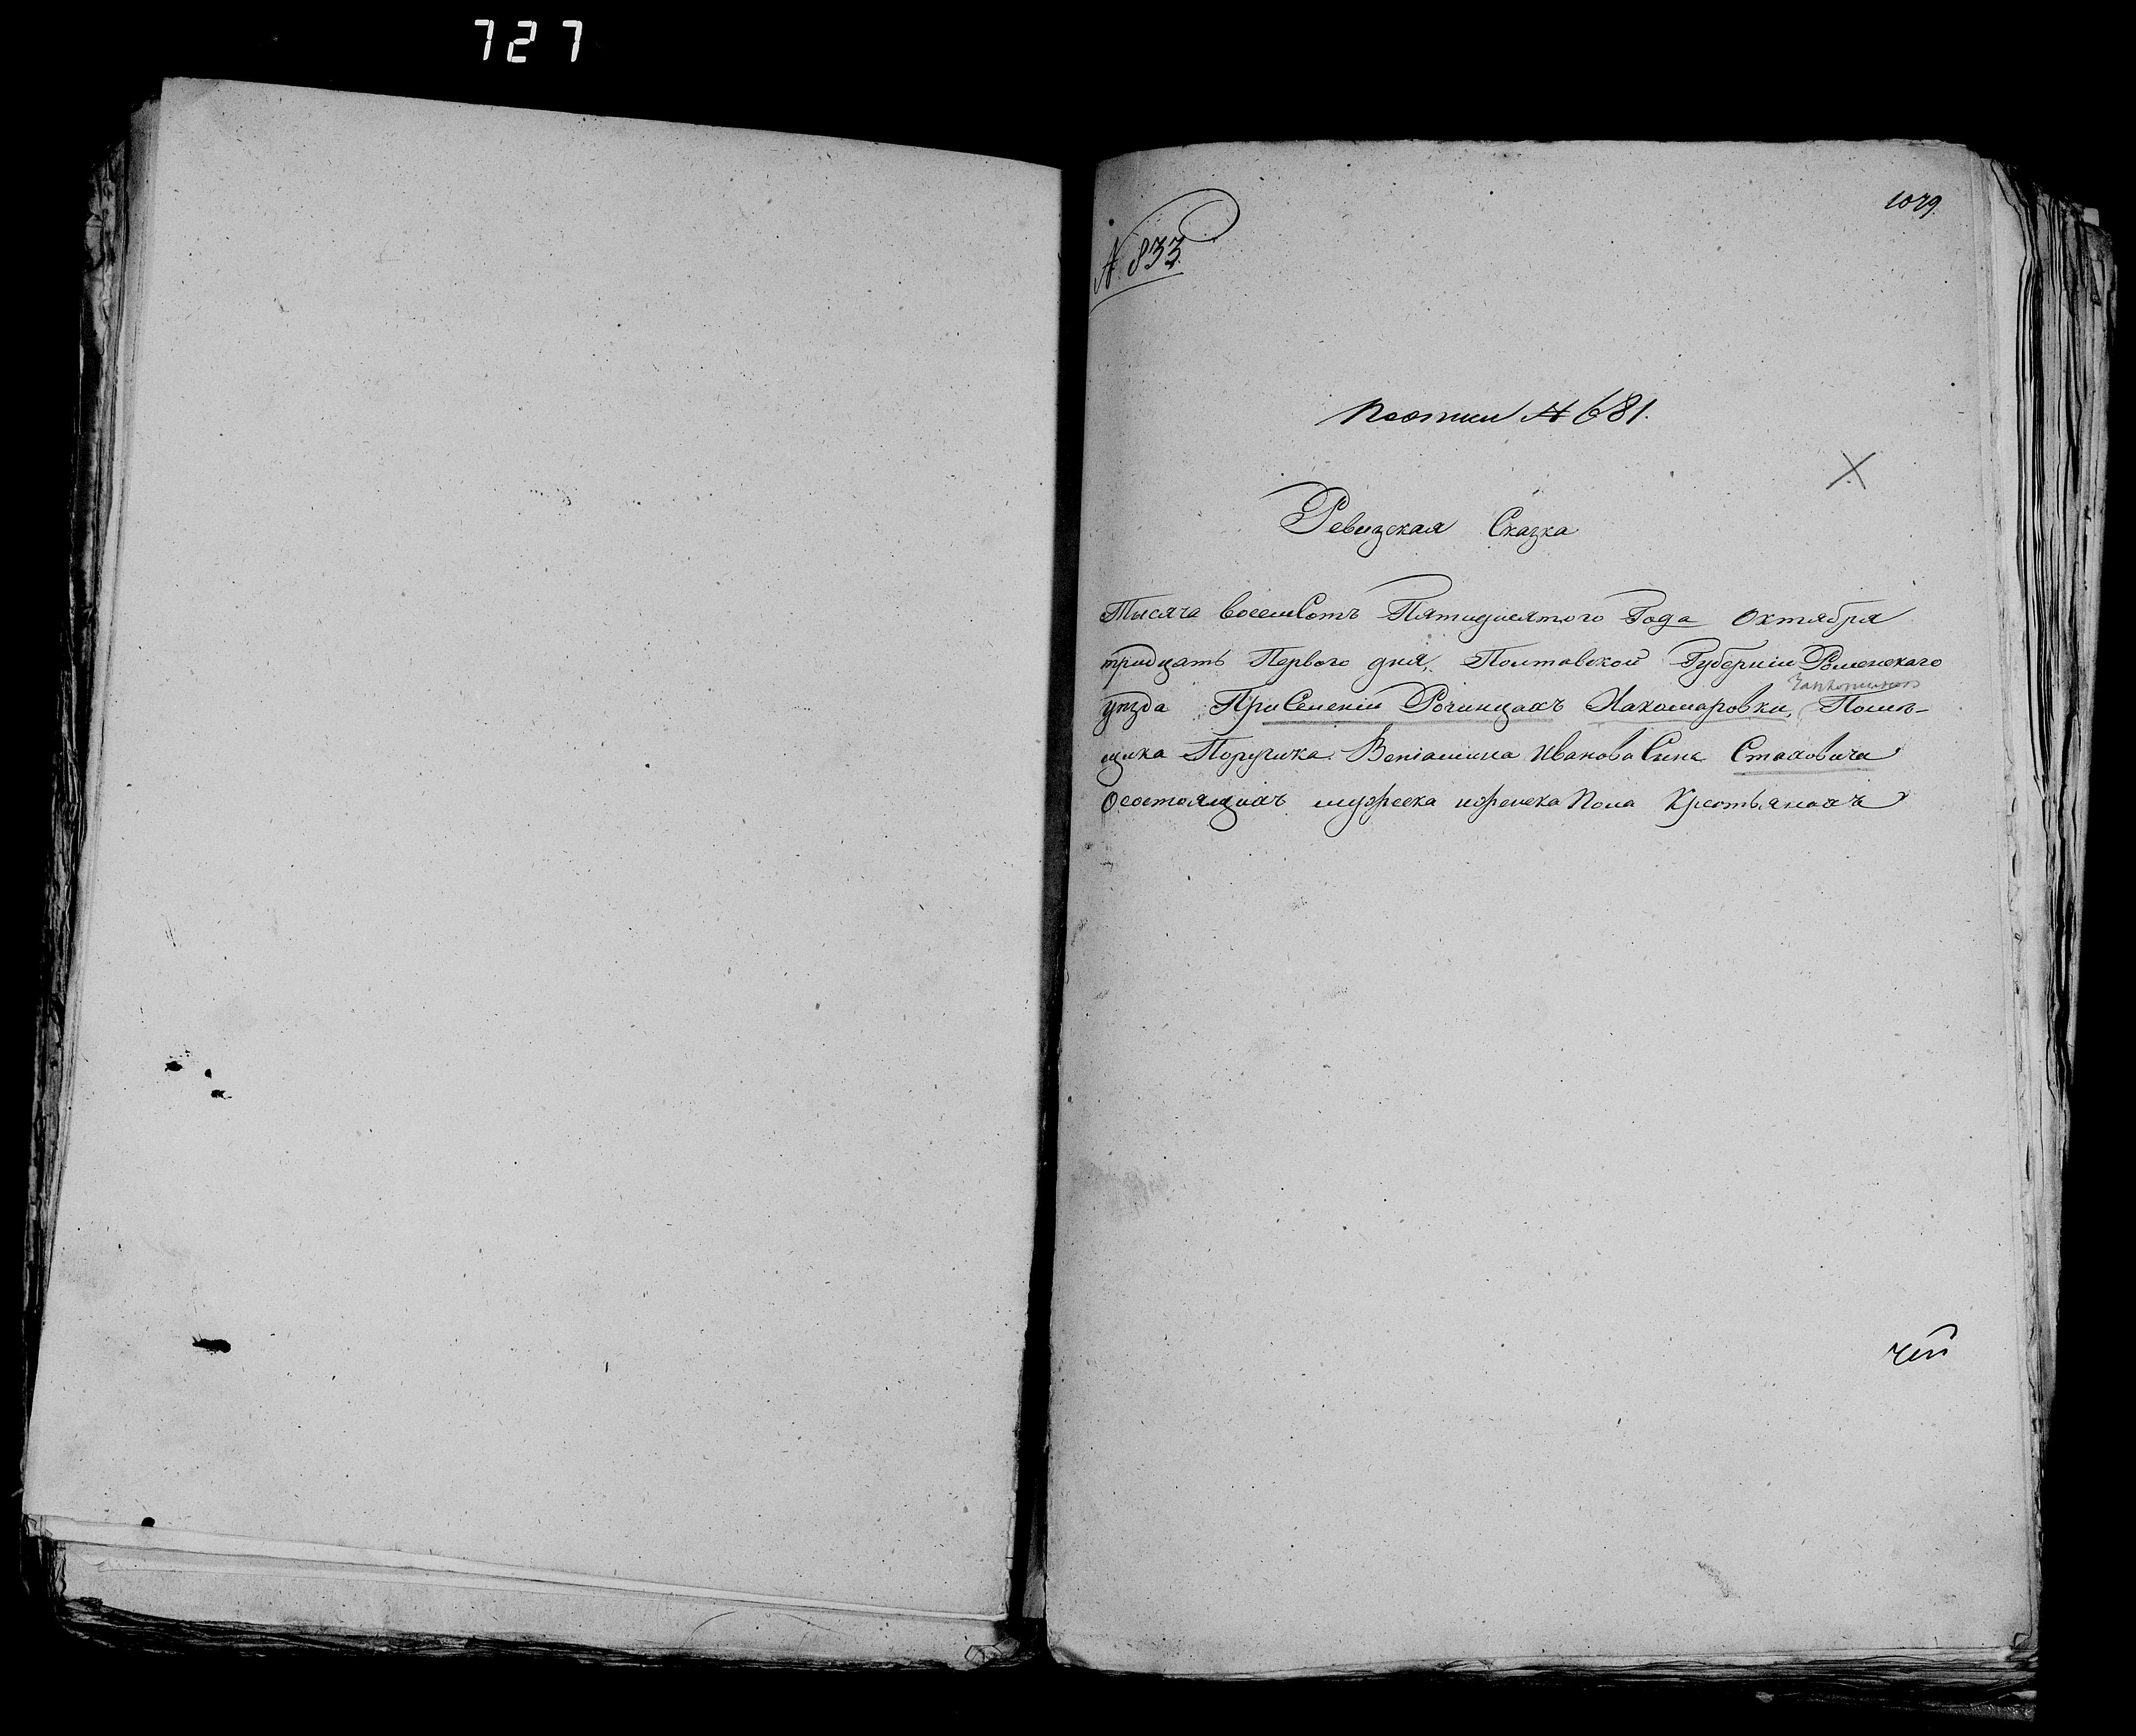 727
1079.
№ 833.
по описи № 681.
Ревизская Сказка
Тысяча восемсотъ Пятидесятого Года Октября
тридцать Первого дня, Полтавской Губерніи Роменского
уезда При Селеніи Рочинцахъ Хахомаровки, Поме-
щика Поручика Веніамина Иванова Сина Стаховича
Осостоящихъ мужеска иженска Пола Крестьянахъ